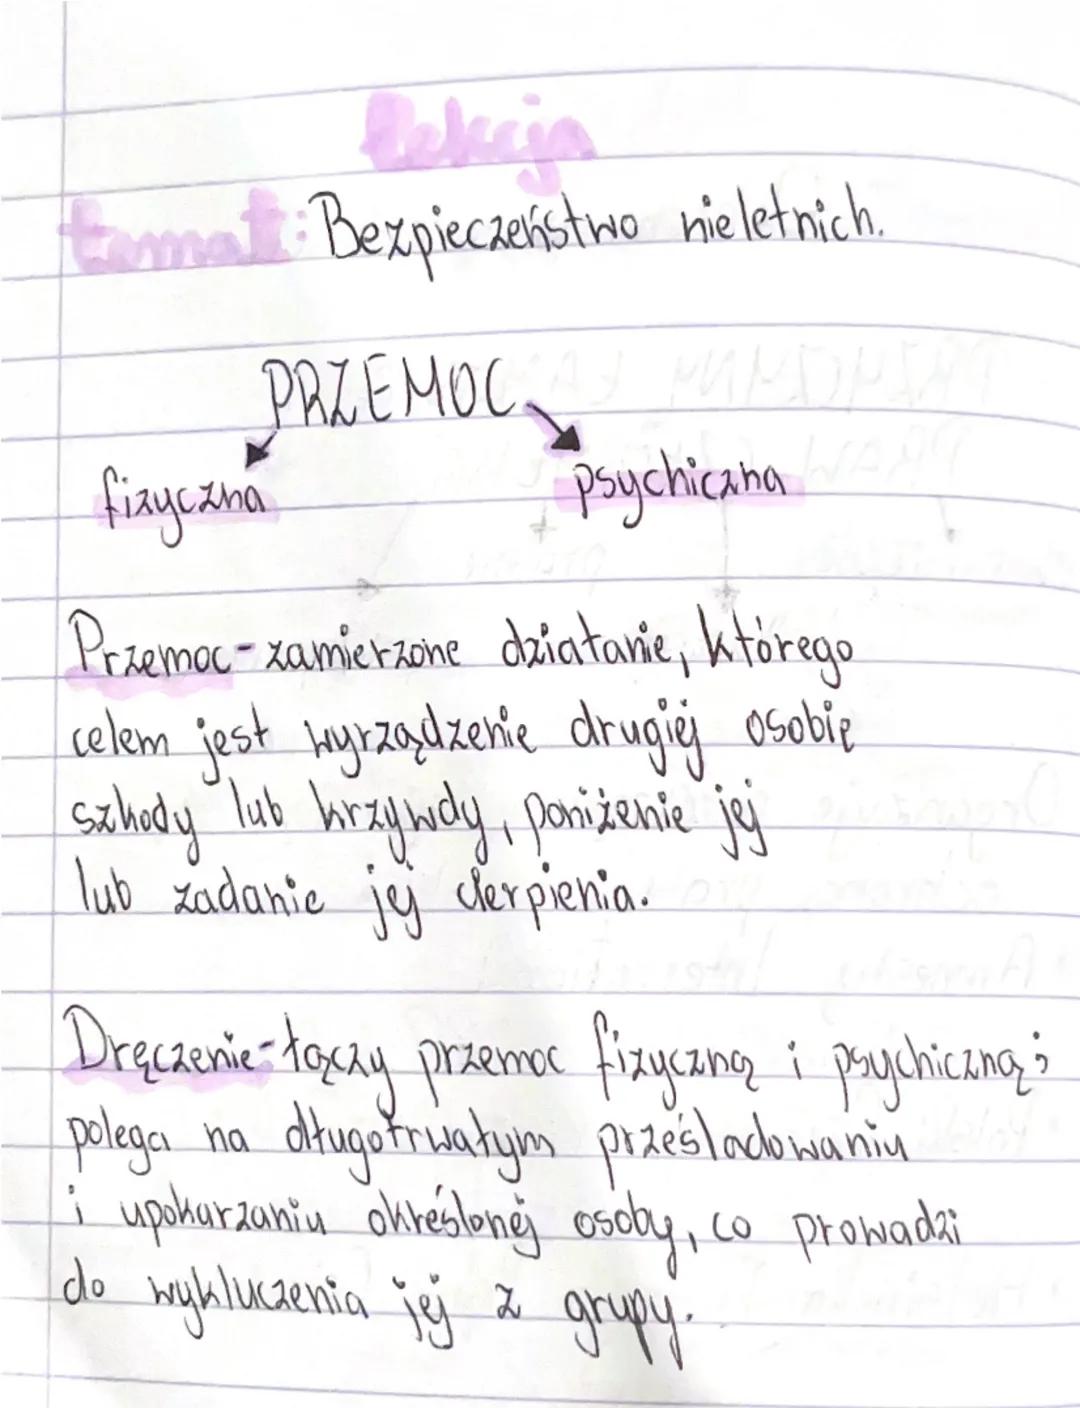 Lekcja
temat: Bezpieczeństwo nieletnich.
PRZEMOC
fizyczna psychiczna
Przemoc - zamierzone działanie, którego
celem jest wyrządzenie drugiej osobie
szkody lub krzywdy, poniżenie jej
lub zadanie jej cierpienia.
Dręczenie - łączy przemoc fizyczną i psychiczną;
polega na długotrwałym prześladowaniu
i upokarzaniu określonej osoby, co prowadzi
do wykluczenia jej z grupy.